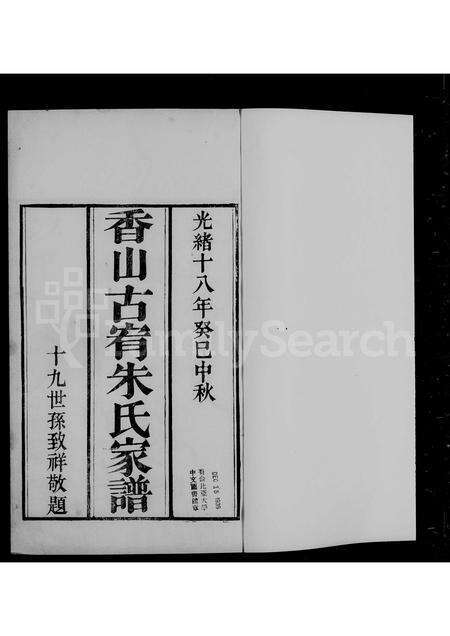 光緒十八年癸巳中秋
香山古宥朱氏家譜
十九世孫致祥敬題
FamilySearch